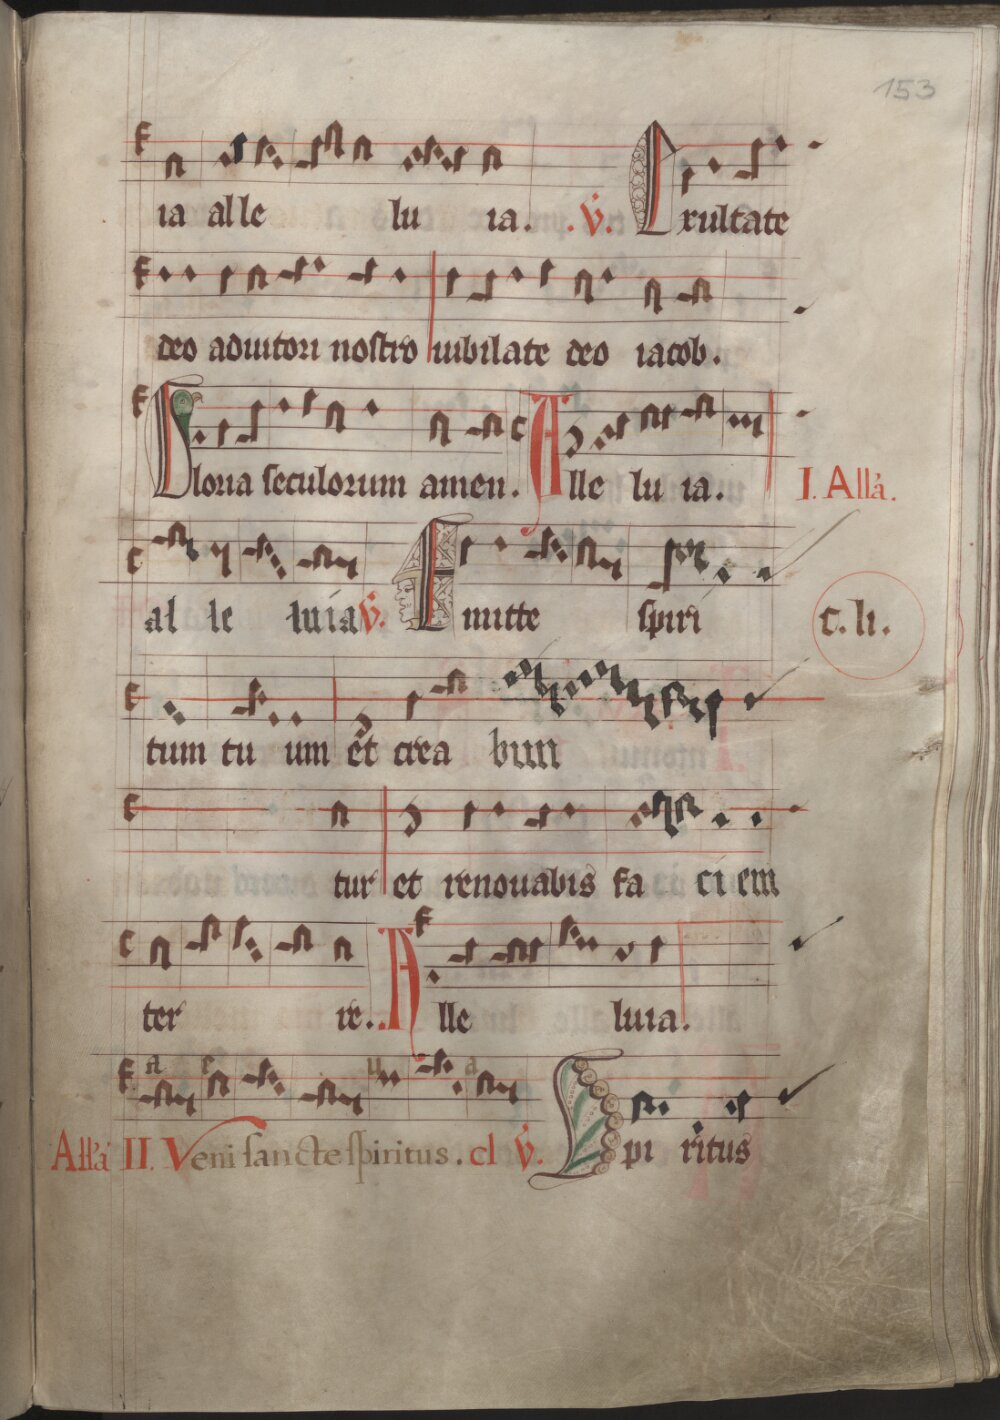 153
ia alle lu ia. .v. Exultate
deo adiutori nostro iubilate deo iacob.
Gloria seculorum amen. Alle lu ia. I. All'a.
al le luia v. Emitte spiri c. li.
tum tu um et crea bun
tur et renouabis fa ciem
ter re. Alle luia.
All'a II. Veni sancte spiritus. cl v. Spi ritus